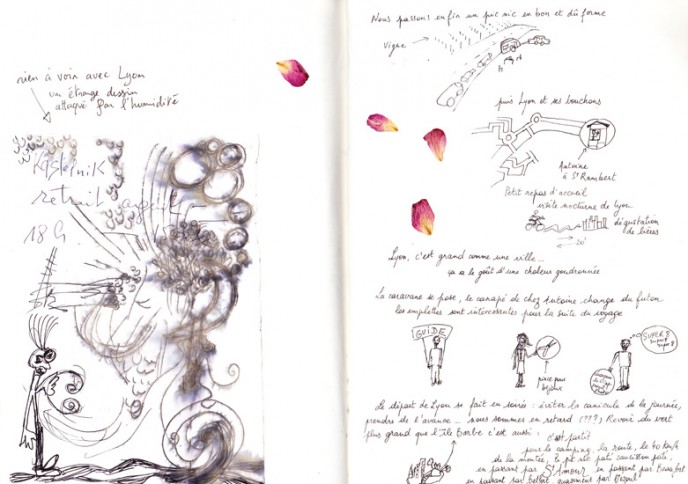 rien à voir avec Lyon
un étrange dessin
attaqué par l'humidité
Kastelnik
retrait
18h
Nous passons enfin un pic nic en bon et dû forme
Vigne
puis Lyon et ses bouchons
Antoine
à St Rambert
Petit repas d'accueil
visite nocturne de Lyon
dégustation
de bières
20'
Lyon, c'est grand comme une ville...
ça a le goût d'une chaleur goudronnée
La caravane se pose, le canapé de chez Antoine change du futon
les emplettes sont interessantes pour la suite du voyage
GUIDE
pince pour
bijoux
SUPER 8
super
Le départ de Lyon se fait en soirée : éviter la canicule de la journée,
prendre de l'avance... nous sommes en retard (???) Revoir du vert
plus grand que l'île Barbe c'est aussi :
c'est parti
pour le camping, la route, le 60 km/h
de la montée, le pic nic paté saucisson pâte,
en passant par St Amour, en passant par Beaufort
en passant par